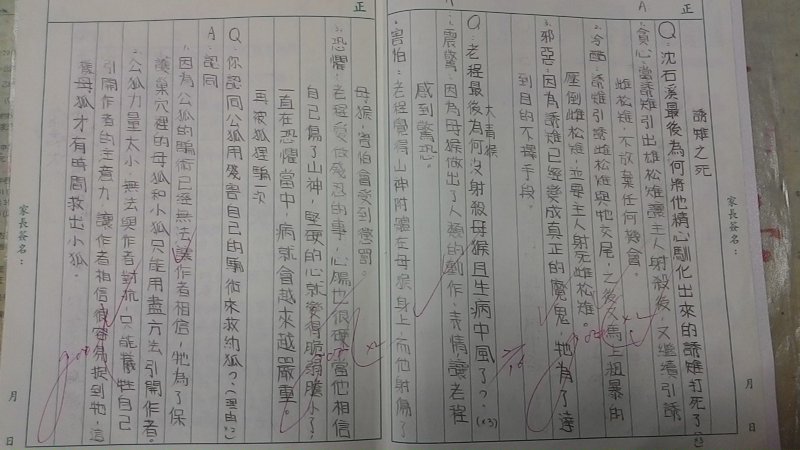 誘雉之死
Q:沈石溪最後為何將他精心馴化出來的誘雉打死了
A:
貪心:當誘雉引出雄松雉讓主人射殺後,又繼續引誘
雌松雉,不放棄任何機會。
冷酷:誘雉引誘雌松雉與牠交尾,之後又馬上粗暴的
壓倒雌松雉,並要主人射死雌松雉。
邪惡:因為誘雉已經變成真正的魔鬼,牠為了達
到目的不擇手段。
大青猴
Q:老程最後為何沒射殺母猴且生病中風了?(x3)
震驚:因為母猴做出了人類的動作、表情,讓老程
感到驚恐。
害怕:老程覺得山神附體在母猴身上,而他射傷了
母猴,害怕會受到懲罰。
恐懼:老程愛做殘忍的事,心腸也很硬,當他相信
自己傷了山神,堅硬的心就變得脆弱膽小了,
一直在恐懼當中,病就會越來越嚴重。
再被狐狸騙一次
Q:你認同公狐用殘害自己的騙術來救幼狐?(理由:2)
A:認同
因為公狐的騙術已經無法讓作者相信,牠為了保
護巢穴裡的母狐和小狐只能用盡方法引開作者。
公狐力量太小,無法與作者對抗,只能犧牲自己
引開作者的注意力,讓作者相信很容易捉到牠,這
樣母狐才有時間救出小狐。
good
good
good
正
正
家長簽名:
家長簽名:
月 日
月 日